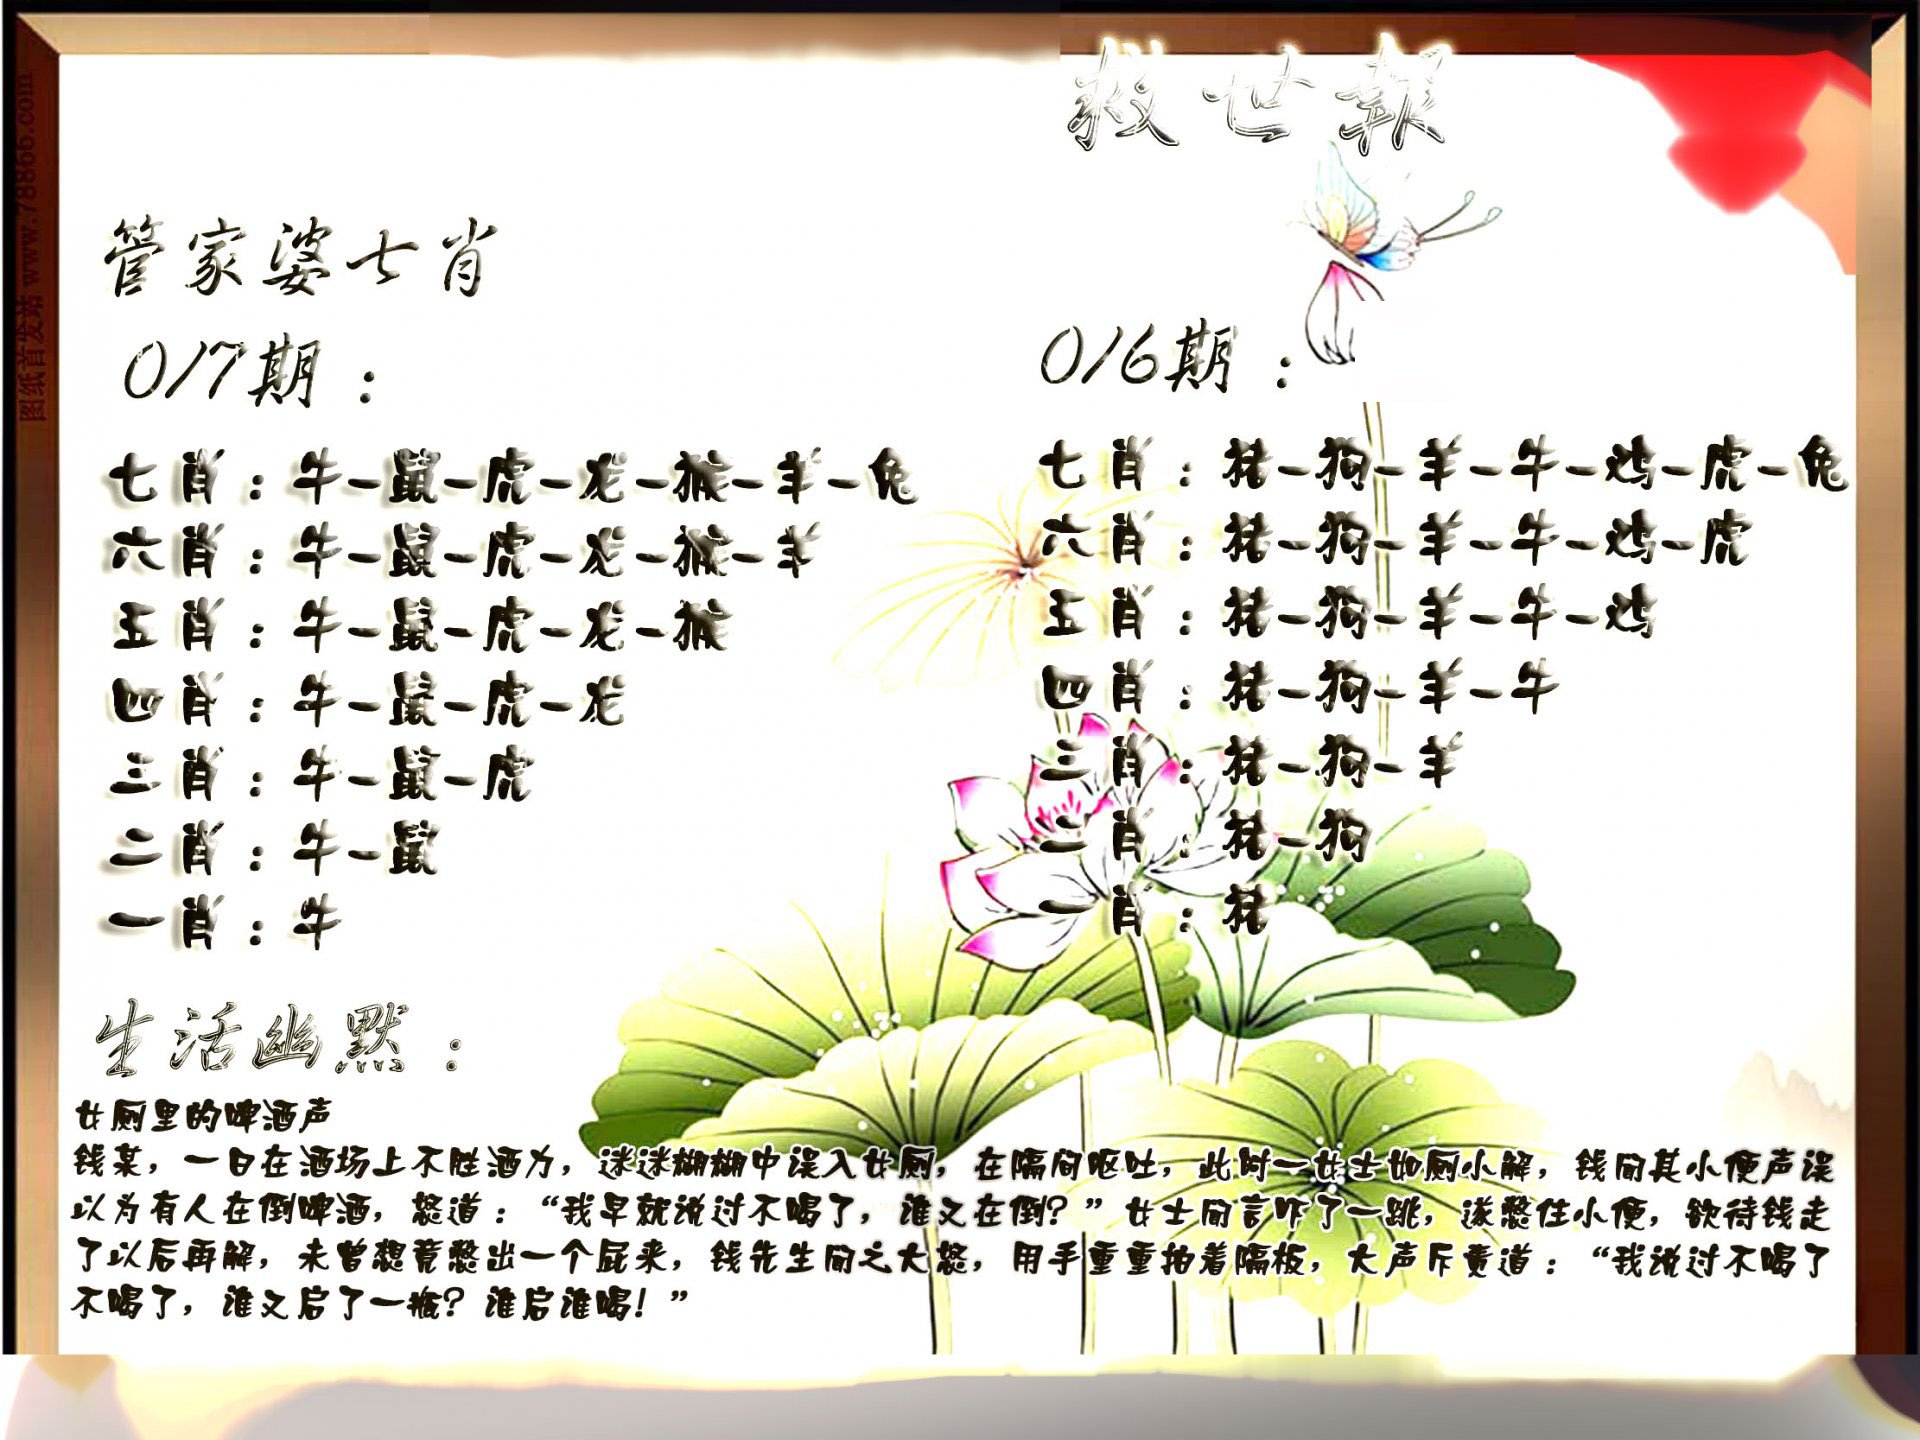 救世報
图纸首发站 www.78866.com
管家婆七肖
017期：
七肖：牛-鼠-虎-龙-猴-羊-兔
六肖：牛-鼠-虎-龙-猴-羊
五肖：牛-鼠-虎-龙-猴
四肖：牛-鼠-虎-龙
三肖：牛-鼠-虎
二肖：牛-鼠
一肖：牛
016期：
七肖：猪-狗-羊-牛-鸡-虎-兔
六肖：猪-狗-羊-牛-鸡-虎
五肖：猪-狗-羊-牛-鸡
四肖：猪-狗-羊-牛
三肖：猪-狗-羊
二肖：猪-狗
一肖：猪
生活幽默：
女厕里的啤酒声
钱某，一日在酒场上不胜酒力，迷迷糊糊中误入女厕，在隔间呕吐，此时一女士如厕小解，钱闻其小便声误
以为有人在倒啤酒，怒道：“我早就说过不喝了，谁又在倒？”女士闻言吓了一跳，遂憋住小便，欲待钱走
了以后再解，未曾想竟憋出一个屁来，钱先生闻之大怒，用手重重拍着隔板，大声斥责道：“我说过不喝了
不喝了，谁又启了一瓶？谁启谁喝！”